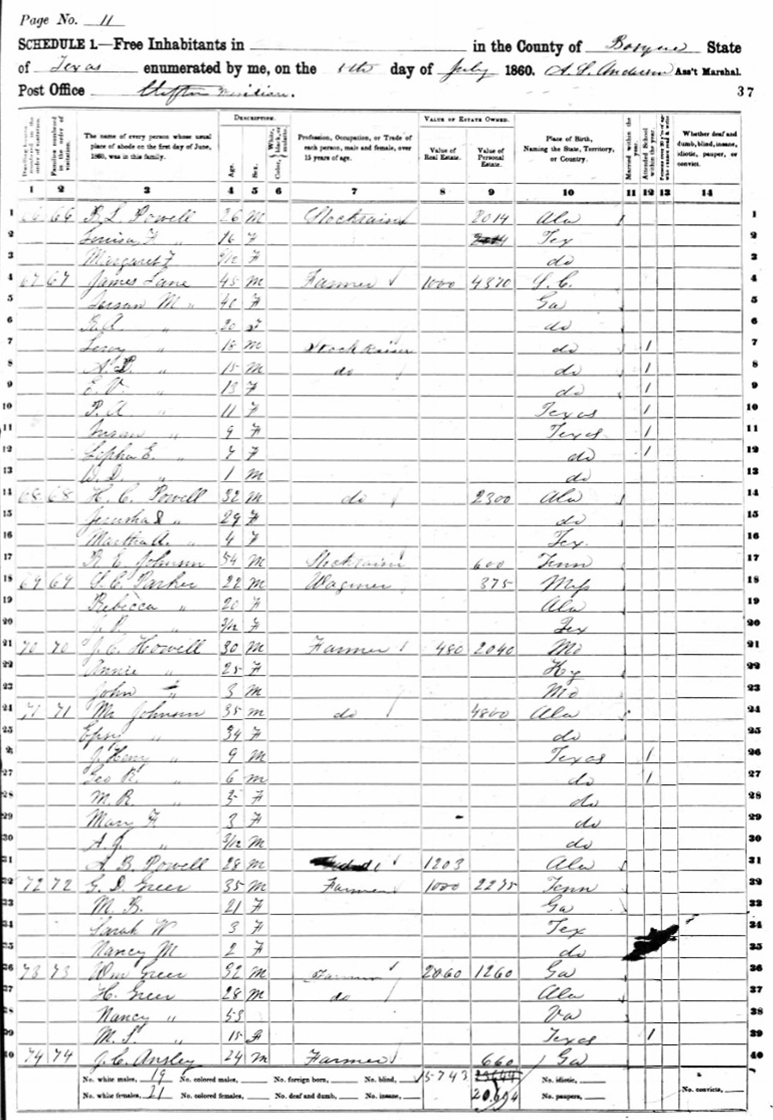 Page No. 11
SCHEDULE 1.—Free Inhabitants in in the County of Bosque State
of Texas enumerated by me, on the day of July 1860. A. S. Anderson Ass't Marshal.
Post Office Clifton Meridian. 37
Dwelling-houses numbered in the order of visitation. Families numbered in the order of visitation. The name of every person whose usual place of abode on the first day of June, 1860, was in this family. DESCRIPTION. Age. Sex. Color, White, black, or mulatto. Profession, Occupation, or Trade of each person, male and female, over 15 years of age. VALUE OF ESTATE OWNED. Value of Real Estate. Value of Personal Estate. Place of Birth, Naming the State, Territory, or Country. Married within the year. Attended School within the year. Whether deaf and dumb, blind, insane, idiotic, pauper, or convict.
1 2 3 4 5 6 7 8 9 10 11 12 13 14
1 66 66 Powell 26 M Stockraiser 2014 Ala 1
2 Louisa F " 16 F Tex 2
3 Margaret F 2/12 F do 3
4 67 67 James Lane 45 M Farmer 1000 4370 S.C. 4
5 Susan M " 40 F Ga 5
6 " 20 F do 6
7 Levy " 18 M Stock Raiser do / 7
8 " 15 M do do / 8
9 E. V " 13 F do / 9
10 P. A " 11 F Texas / 10
11 Susan " 9 F Texas / 11
12 Sipha E. " 7 F do / 12
13 W. D. " 1 M do 13
14 68 68 H. C. Powell 32 M do 2300 Ala 14
15 Jerusha " 29 F do 15
16 Martha A. " 4 F Tex 16
17 R. E. Johnson 54 M Stockraiser 600 Tenn 17
18 69 69 A. C. Parker 22 M Wagoner 375 Miss 18
19 Rebecca " 20 F Ala 19
20 " 2/12 F Tex 20
21 70 70 J. C. Howell 30 M Farmer 480 2040 Mo 21
22 Annie " 25 F Ky 22
23 John " 3 M Mo 23
24 71 71 Wm Johnson 35 M do 4800 Ala 24
25 Epsy " 34 F do 25
26 J. Henry " 9 M Texas / 26
27 Geo R. " 6 M do / 27
28 M. R. " 5 F do 28
29 Mary F " 3 F do 29
30 A. J. " 2/12 M do 30
31 A. B. Powell 28 M 1203 Ala 31
32 72 72 G. D. Greer 35 M Farmer 1000 2275 Tenn 32
33 M. B. 21 F Ga 33
34 Sarah W 3 F Tex 34
35 Nancy M 2 F do 35
36 73 73 Wm Greer 32 M Farmer 2060 1260 Ga 36
37 H. Greer 28 M do Ala 37
38 Nancy " 53 Va 38
39 M. S. " 15 F Texas / 39
40 74 74 J. C. Ansley 24 M Farmer 660 Ga 40
No. white males, 19 No. colored males, No. foreign born, No. blind, 15743 No. idiotic,
No. white females, 21 No. colored females, No. deaf and dumb, No. insane, 20,694 No. paupers, No. convicts,